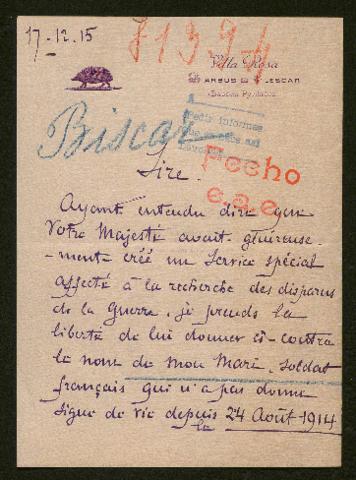 17-12.15
Villa Rosa
Basses Pyrénées
Biscay
Pedir informes
Fecho
Sire.
Ayant entendu dire que
Votre Majesté avait généreuse-
-ment créé un Service spécial
affecté à la recherche des disparus
de la Guerre, je prends la
liberté de lui donner ci-contre
le nom de mon Mari, Soldat
français qui n'a pas donné
signe de vie depuis le 24 Août 1914